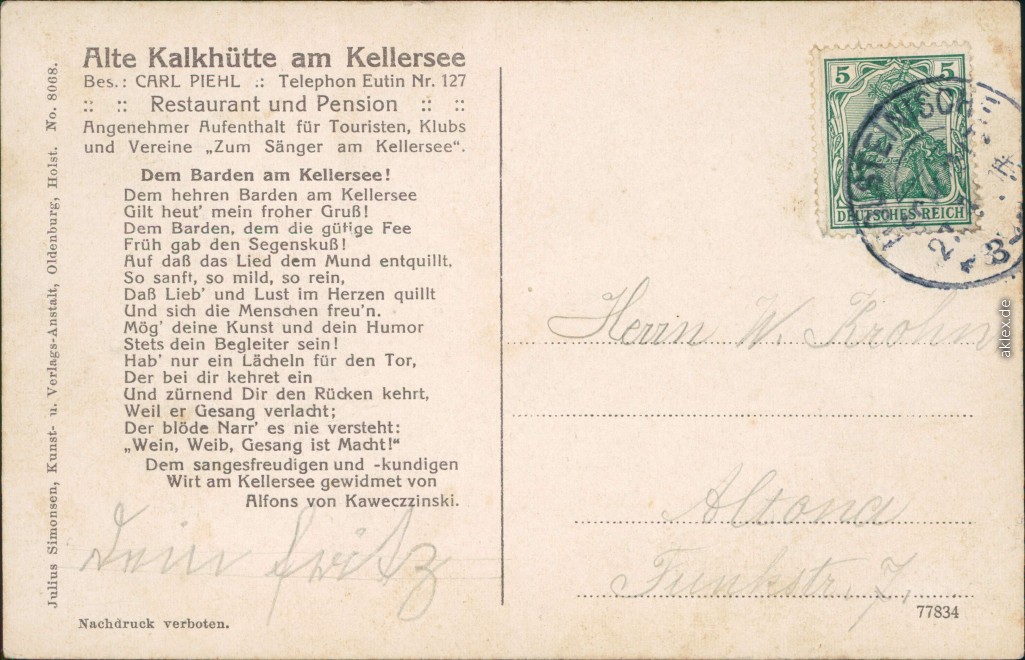 Alte Kalkhütte am Kellersee
Bes.: CARL PIEHL .: Telephon Eutin Nr. 127
:: :: Restaurant und Pension :: ::
Angenehmer Aufenthalt für Touristen, Klubs
und Vereine „Zum Sänger am Kellersee“.
Dem Barden am Kellersee!
Dem hehren Barden am Kellersee
Gilt heut' mein froher Gruß!
Dem Barden, dem die gütige Fee
Früh gab den Segenskuß!
Auf daß das Lied dem Mund entquillt,
So sanft, so mild, so rein,
Daß Lieb' und Lust im Herzen quillt
Und sich die Menschen freu'n.
Mög' deine Kunst und dein Humor
Stets dein Begleiter sein!
Hab' nur ein Lächeln für den Tor,
Der bei dir kehret ein
Und zürnend Dir den Rücken kehrt,
Weil er Gesang verlacht;
Der blöde Narr' es nie versteht:
„Wein, Weib, Gesang ist Macht!“
Dem sangesfreudigen und -kundigen
Wirt am Kellersee gewidmet von
Alfons von Kaweczzinski.
Dein Fritz
Nachdruck verboten.
Julius Simonsen, Kunst- u. Verlags-Anstalt, Oldenburg, Holst. No. 8068.
5 5
DEUTSCHES REICH
Herrn W. Krohn
Altona
Funkstr. 7.
77834
aklex.de